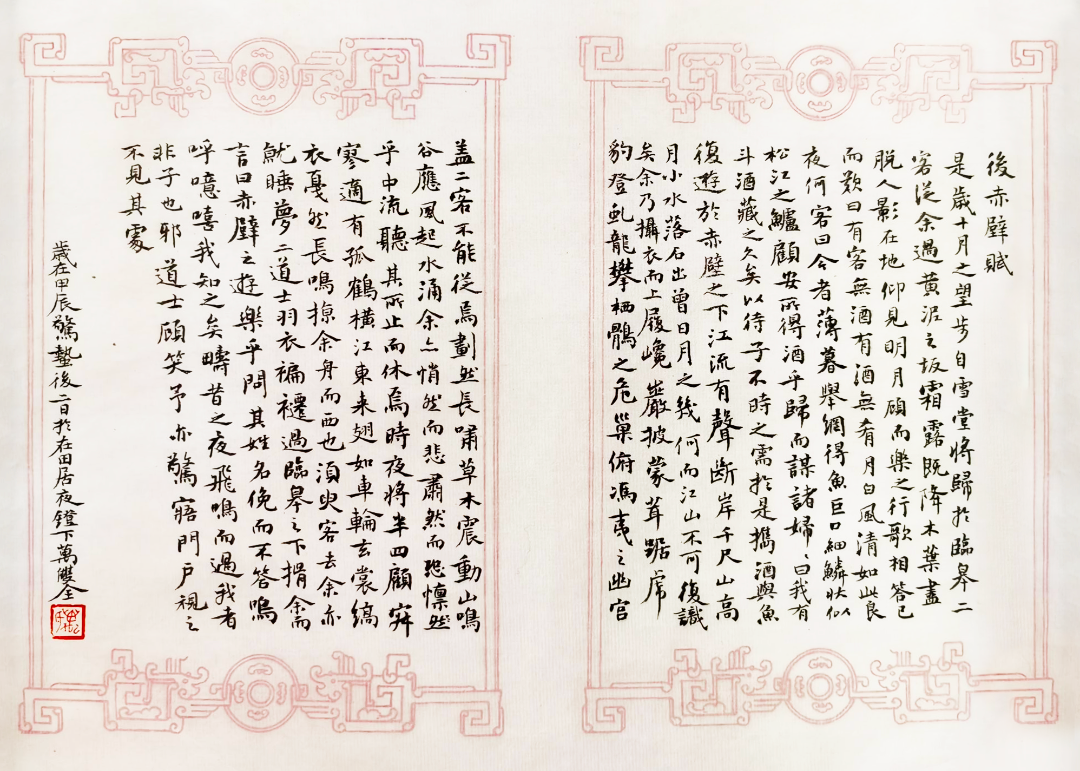 後赤壁賦
是歲十月之望步自雪堂將歸於臨皋二
客從余過黃泥之坂霜露既降木葉盡
脫人影在地仰見明月顧而樂之行歌相答已
而歎曰有客無酒有酒無肴月白風清如此良
夜何客曰今者薄暮舉網得魚巨口細鱗狀似
松江之鱸顧安所得酒乎歸而謀諸婦〻曰我有
斗酒藏之久矣以待子不時之需於是攜酒與魚
復遊於赤壁之下江流有聲斷岸千尺山高
月小水落石出曾日月之幾何而江山不可復識
矣余乃攝衣而上履巉巖披蒙茸踞虎
豹登虬龍攀栖鶻之危巢俯馮夷之幽宮
蓋二客不能從焉劃然長嘯草木震動山鳴
谷應風起水涌余亦悄然而悲肅然而恐懍然
乎中流聽其所止而休焉時夜將半四顧寂
寥適有孤鶴橫江東來翅如車輪玄裳縞
衣戛然長鳴掠余舟而西也須臾客去余亦
就睡夢二道士羽衣褊褼過臨皋之下揖余而
言曰赤壁之遊樂乎問其姓名俛而不答嗚
呼噫嘻我知之矣疇昔之夜飛鳴而過我者
非子也邪 道士顧笑予亦驚寤開戶視之
不見其處
歲在甲辰驚蟄後二日於在田居夜鐙下萬雙全